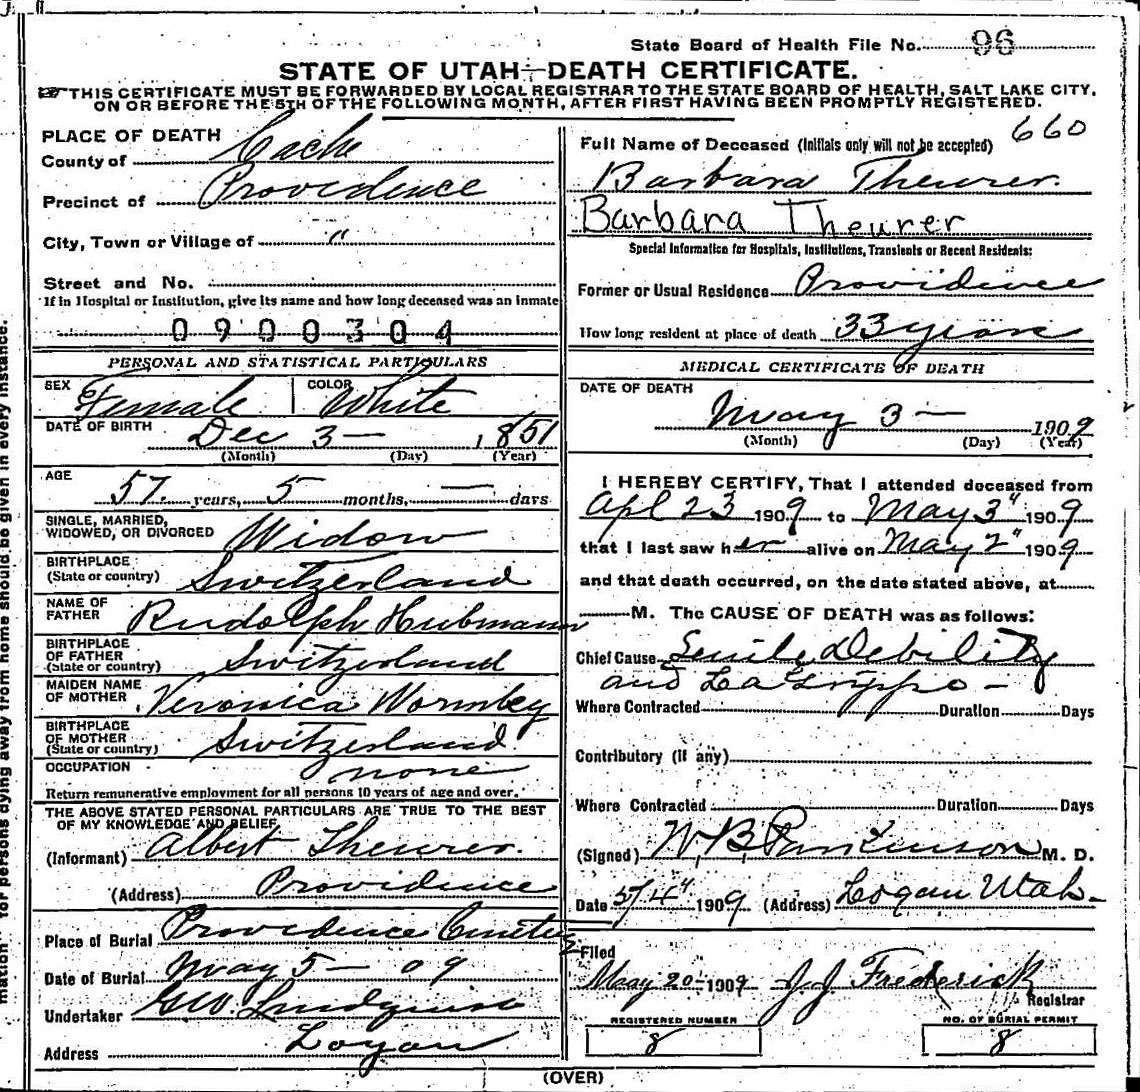 State Board of Health File No. 96
STATE OF UTAH—DEATH CERTIFICATE.
THIS CERTIFICATE MUST BE FORWARDED BY LOCAL REGISTRAR TO THE STATE BOARD OF HEALTH, SALT LAKE CITY,
ON OR BEFORE THE 5TH OF THE FOLLOWING MONTH, AFTER FIRST HAVING BEEN PROMPTLY REGISTERED.
PLACE OF DEATH
County of Cache
Precinct of Providence
City, Town or Village of "
Street and No.
If in Hospital or Institution, give its name and how long deceased was an inmate
0900304
PERSONAL AND STATISTICAL PARTICULARS
SEX Female COLOR White
DATE OF BIRTH Dec 3 — 1851
(Month) (Day) (Year)
AGE
57 years, 5 months, — days
SINGLE, MARRIED,
WIDOWED, OR DIVORCED Widow
BIRTHPLACE
(State or country) Switzerland
NAME OF
FATHER Rudolph Hubmann
BIRTHPLACE
OF FATHER
(State or country) Switzerland
MAIDEN NAME
OF MOTHER Veronica Wormley
BIRTHPLACE
OF MOTHER
(State or country) Switzerland
OCCUPATION none
Return remunerative employment for all persons 10 years of age and over.
THE ABOVE STATED PERSONAL PARTICULARS ARE TRUE TO THE BEST
OF MY KNOWLEDGE AND BELIEF
(Informant) Albert Theurer.
(Address) Providence
Place of Burial Providence Cemetery
Date of Burial May 5 — 09
Undertaker G.W. Lindquist
Address Logan
660
Full Name of Deceased (Initials only will not be accepted)
Barbara Theurer.
Barbara Theurer
Special Information for Hospitals, Institutions, Transients or Recent Residents:
Former or Usual Residence Providence
How long resident at place of death 33 years
MEDICAL CERTIFICATE OF DEATH
DATE OF DEATH
May 3 — 1909
(Month) (Day) (Year)
I HEREBY CERTIFY, That I attended deceased from
Apl 23 1909 to May 3" 1909
that I last saw her alive on May 2" 1909
and that death occurred, on the date stated above, at
M. The CAUSE OF DEATH was as follows:
Chief Cause Senile Debility
and La Grippe —
Where Contracted Duration Days
Contributory (if any)
Where Contracted Duration Days
(Signed) W. B. Parkinson M. D.
Date 5/4" 1909 (Address) Logan Utah—
Filed
May 20 1909 J. J. Frederick
Registrar
REGISTERED NUMBER
8
NO. OF BURIAL PERMIT
8
(OVER)
mation for persons dying away from home should be given in every instance.